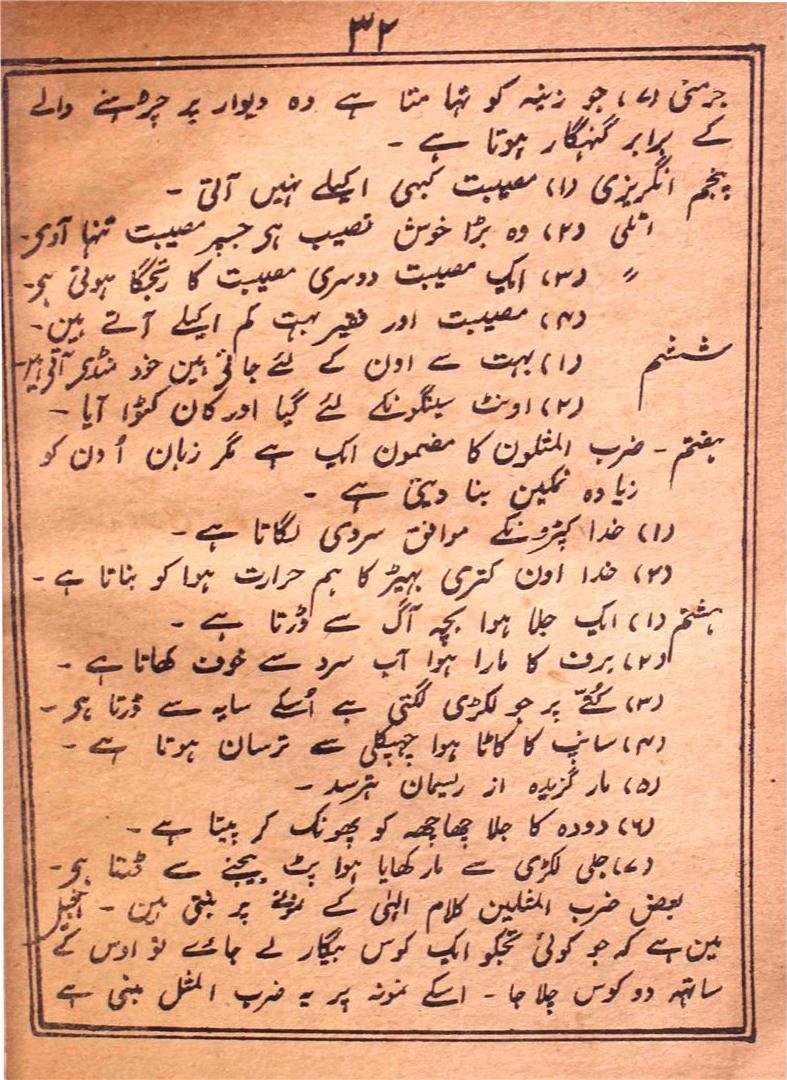 ۳۲
جرمنی (۷) جو زینہ کو تہا متا ہے وہ دیوار پر چرہنے والے
کے برابر گنہگار ہوتا ہے ۔
پنجم انگریزی (۱) مصیبت کبہی اکیلے نہیں آتی ۔
اٹلی (۲) وہ بڑا خوش نصیب ہی جسپر مصیبت تنہا آوی۔
〃 (۳) ایک مصیبت دوسری مصیبت کا رتجگا ہوتی ہی۔
(۴) مصیبت اور فقیر بہت کم اکیلے آتے ہین۔
ششم (۱) بہت سے اون کے لئے جاتی ہین خود منڈی آتی ہین۔
(۲) اونٹ سینگونکے لئے گیا اور کان کٹوا آیا ۔
ہفتم ۔ ضرب المثلون کا مضمون ایک ہے مگر زبان اُون کو
زیادہ نمکین بنا دیتی ہے ۔
(۱) خدا کپڑونکے موافق سردی لگاتا ہے۔
(۲) خدا اون کتری بہیڑ کا ہم حرارت ہوا کو بناتا ہے ۔
ہشتم (۱) ایک جلا ہوا بچہ آگ سے ڈرتا ہے ۔
(۲) برف کا مارا ہوا آب سرد سے خوف کھاتا ہے ۔
(۳) کُتّے پر جو لکڑی لگتی ہے اُسکے سایہ سے ڈرتا ہی ۔
(۴) سانپ کا کاٹا ہوا چہپکلی سے ترسان ہوتا ہے ۔
(۵) مار گزیدہ از ریسمان بترسد ۔
(۶) دودہ کا جلا چھاچھہ کو پھونک کر پیتا ہے ۔
(۷) جلی لکڑی سے مار کھایا ہوا پٹ بیجنے سے ڈرتا ہی۔
بعض ضرب المثلین کلام الہٰی کے نمونے پر بنتی ہین ۔ انجیل
مین ہے کہ جو کوئی تجکو ایک کوس بیگار لے جاے تو اوس کے
ساتہہ دو کوس چلا جا ۔ اسکے نمونہ پر یہ ضرب المثل مبنی ہے